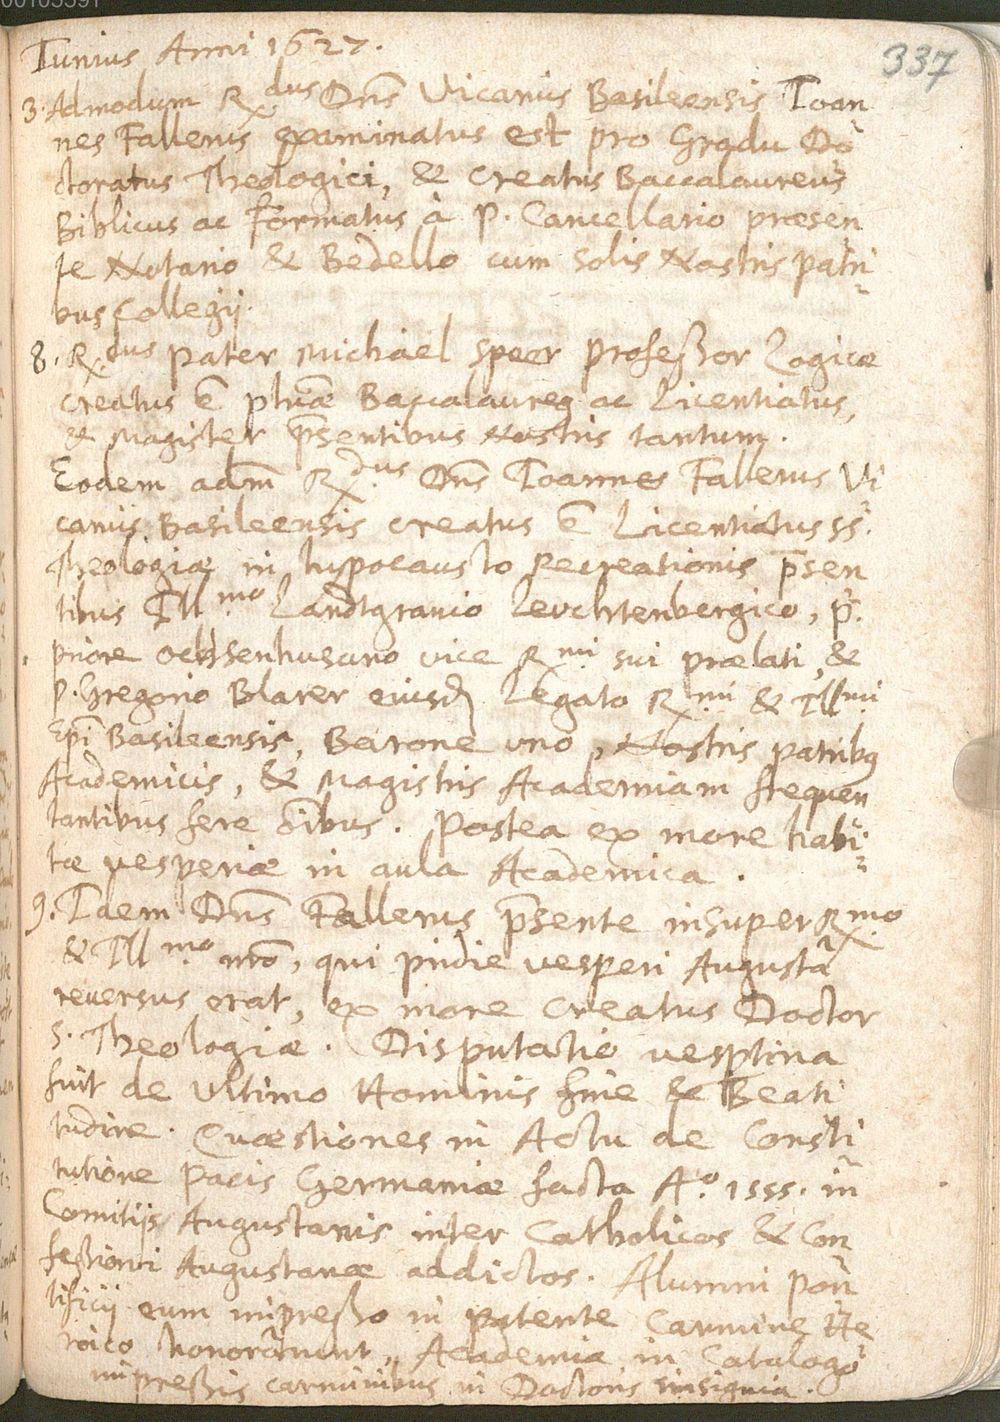 00103391
337
Iunius Anni 1627.
3. Admodum Rdus Dns Vicarius Basileensis Ioan
nes Fallerus examinatus est pro Gradu Do
ctoratus Theologici, & creatus Baccalaureus
Biblicus ac formatus à P. Cancellario præsen
te Notario & Bedello cum solis Nostris patri
bus Collegij.
8. Rdus pater Michaël Speer professor Logicæ
creatus ē phiæ Baccalaureg ac Licentiatus,
& Magister pnsentibus Nostris tantum.
Eodem adm Rdus Dns Ioannes Fallerus Vi
carius Basileensis creatus ē Licentiatus SS.
Theologiæ in hypocausto Recreationis pnsen
tibus Illmo Landtgravio Leuchtenbergico, P.
priore Ochsenhusano vice Rmi sui prælati, &
P. Gregorio Blarer eiusd Legato Rmi & Illmi
Epi Basileensis, Barone uno, Nostris patribg
Academicis, & Magistris Academiam frequen
tantibus fere oībus. Postea ex more habi
tæ vesperiæ in aula Academica.
9. Idem Dns Fallerus pnsente insuper Rmo
& Illmo nrō, qui pridie vesperi Augustā
reversus erat, ex more creatus Doctor
S. Theologiæ. Disputatio vesptina
fuit de Ultimo Hominis fine & Beati
tudine. Quæstiones in Actu de Consti
tutione Pacis Germaniæ facta Ao. 1555. in
Comitijs Augustanis inter Catholicos & Con
fessioni Augustanæ addictos. Alumni pon
tificij eum impresso in patente Carmine He
roico honorârunt, Academia in Catalogo
impressis carminibus in Doctoris insignia.